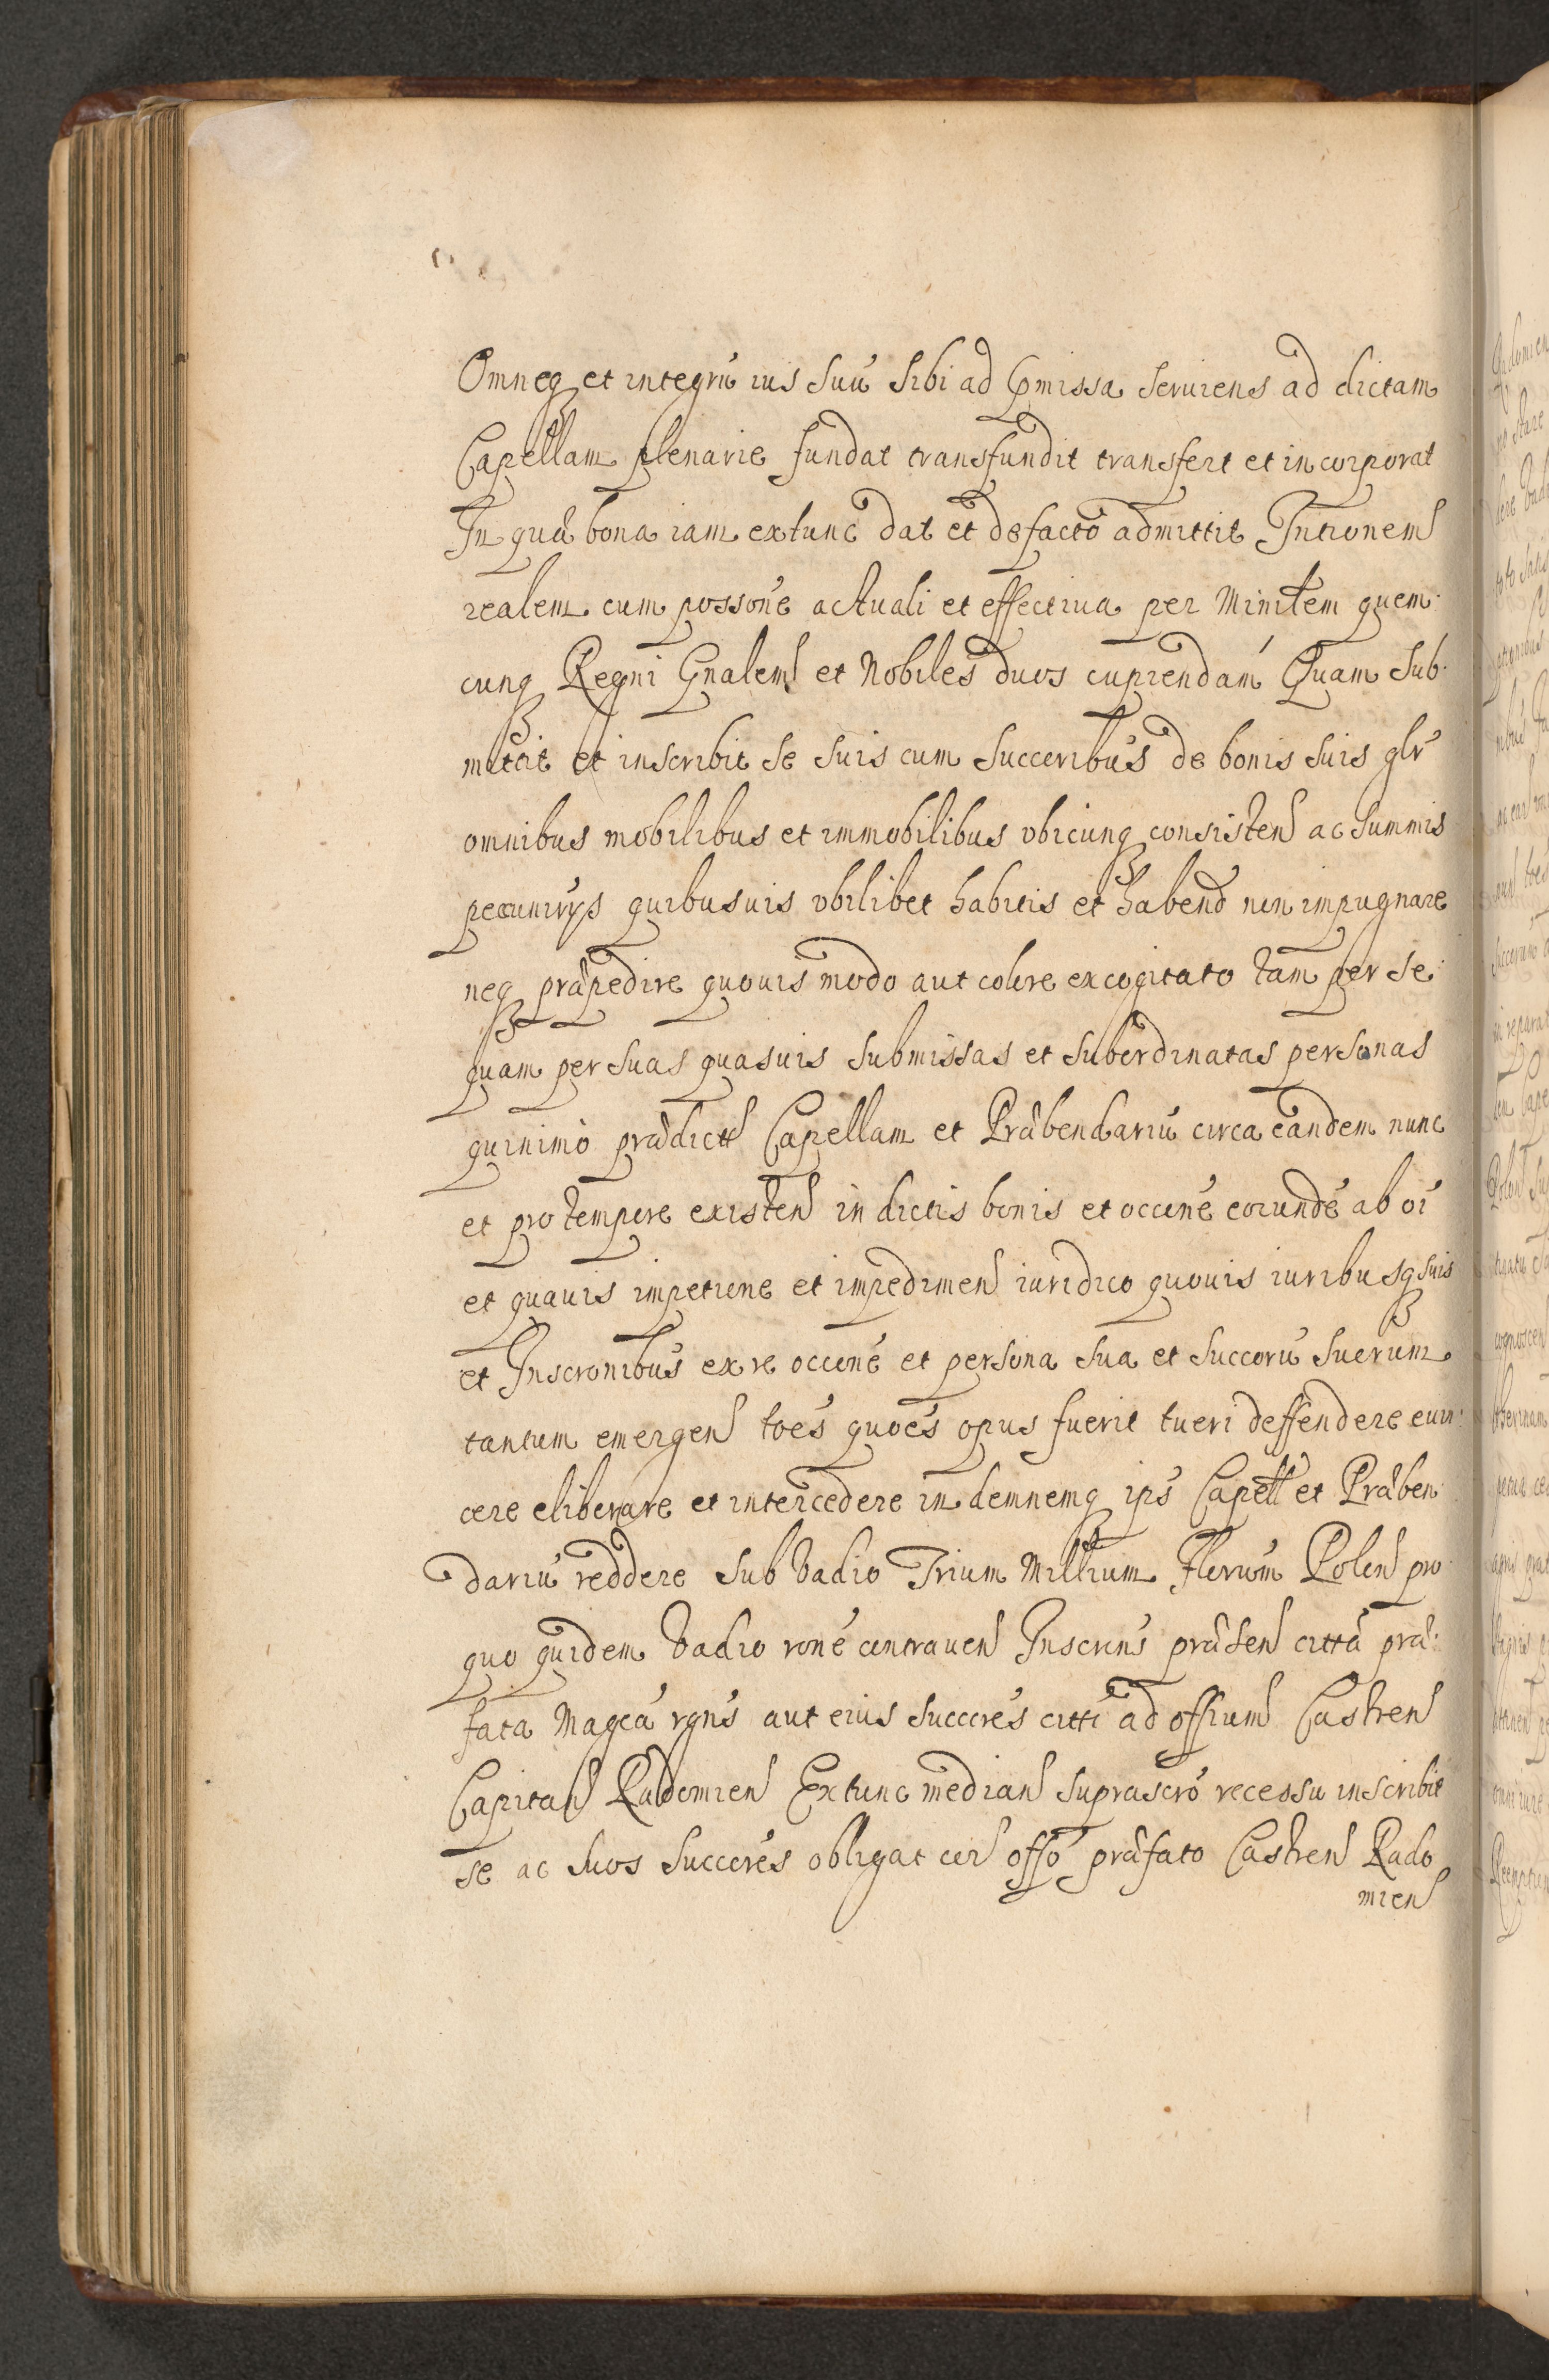 Omneq et integrũ ius suũ sibi ad pmissa seruiens ad dictam
Capellam plenarie fundat transfundit transfert et incorporat
In quã bona iam extunc dat et defacto admittit Intionem
realem cum possone actuali et effectiua per Ministem quem
cunq Regni Gnalem et Nobiles duos cupiendam Quam sub
mittit et inscribit se suis cum succoribus de bonis suis glr
omnibus mobilibus et immobilibus vbicunq consisten ac summis
pecunirys quibusuis vbilibet habitis et habend non impugnare
neq præpedire quouis modo aut colore excogitato tam per se
quam per suas quasuis submissas et subordinatas personas
quinimo prædict Capellam et Præbendariũ circa eandem nunc
et pro tempore existen in dictis bonis et occone eorunde ab oi
et quauis impetione et impedimen iuridico quouis iuribusq suis
et Inscronibus ex re occone et persona sua et succorũ suorum
tantum emergen toes quoes opus fuerit tueri deffendere euin
cere eliberare et intercedere indemnemq ips Capell et Præben
dariũ reddere sub Vadio Trium Millium Florum Polon pro
quo quidem Vadio rone contrauen Inscrins præsen citta præ:
fata Magca rgns aut eius succores citti ad offium Castren
Capitan Radomien Extunc median suprascro recessu inscribit
se ac suos succores obligat cor offo præfato Castren Rado
mien